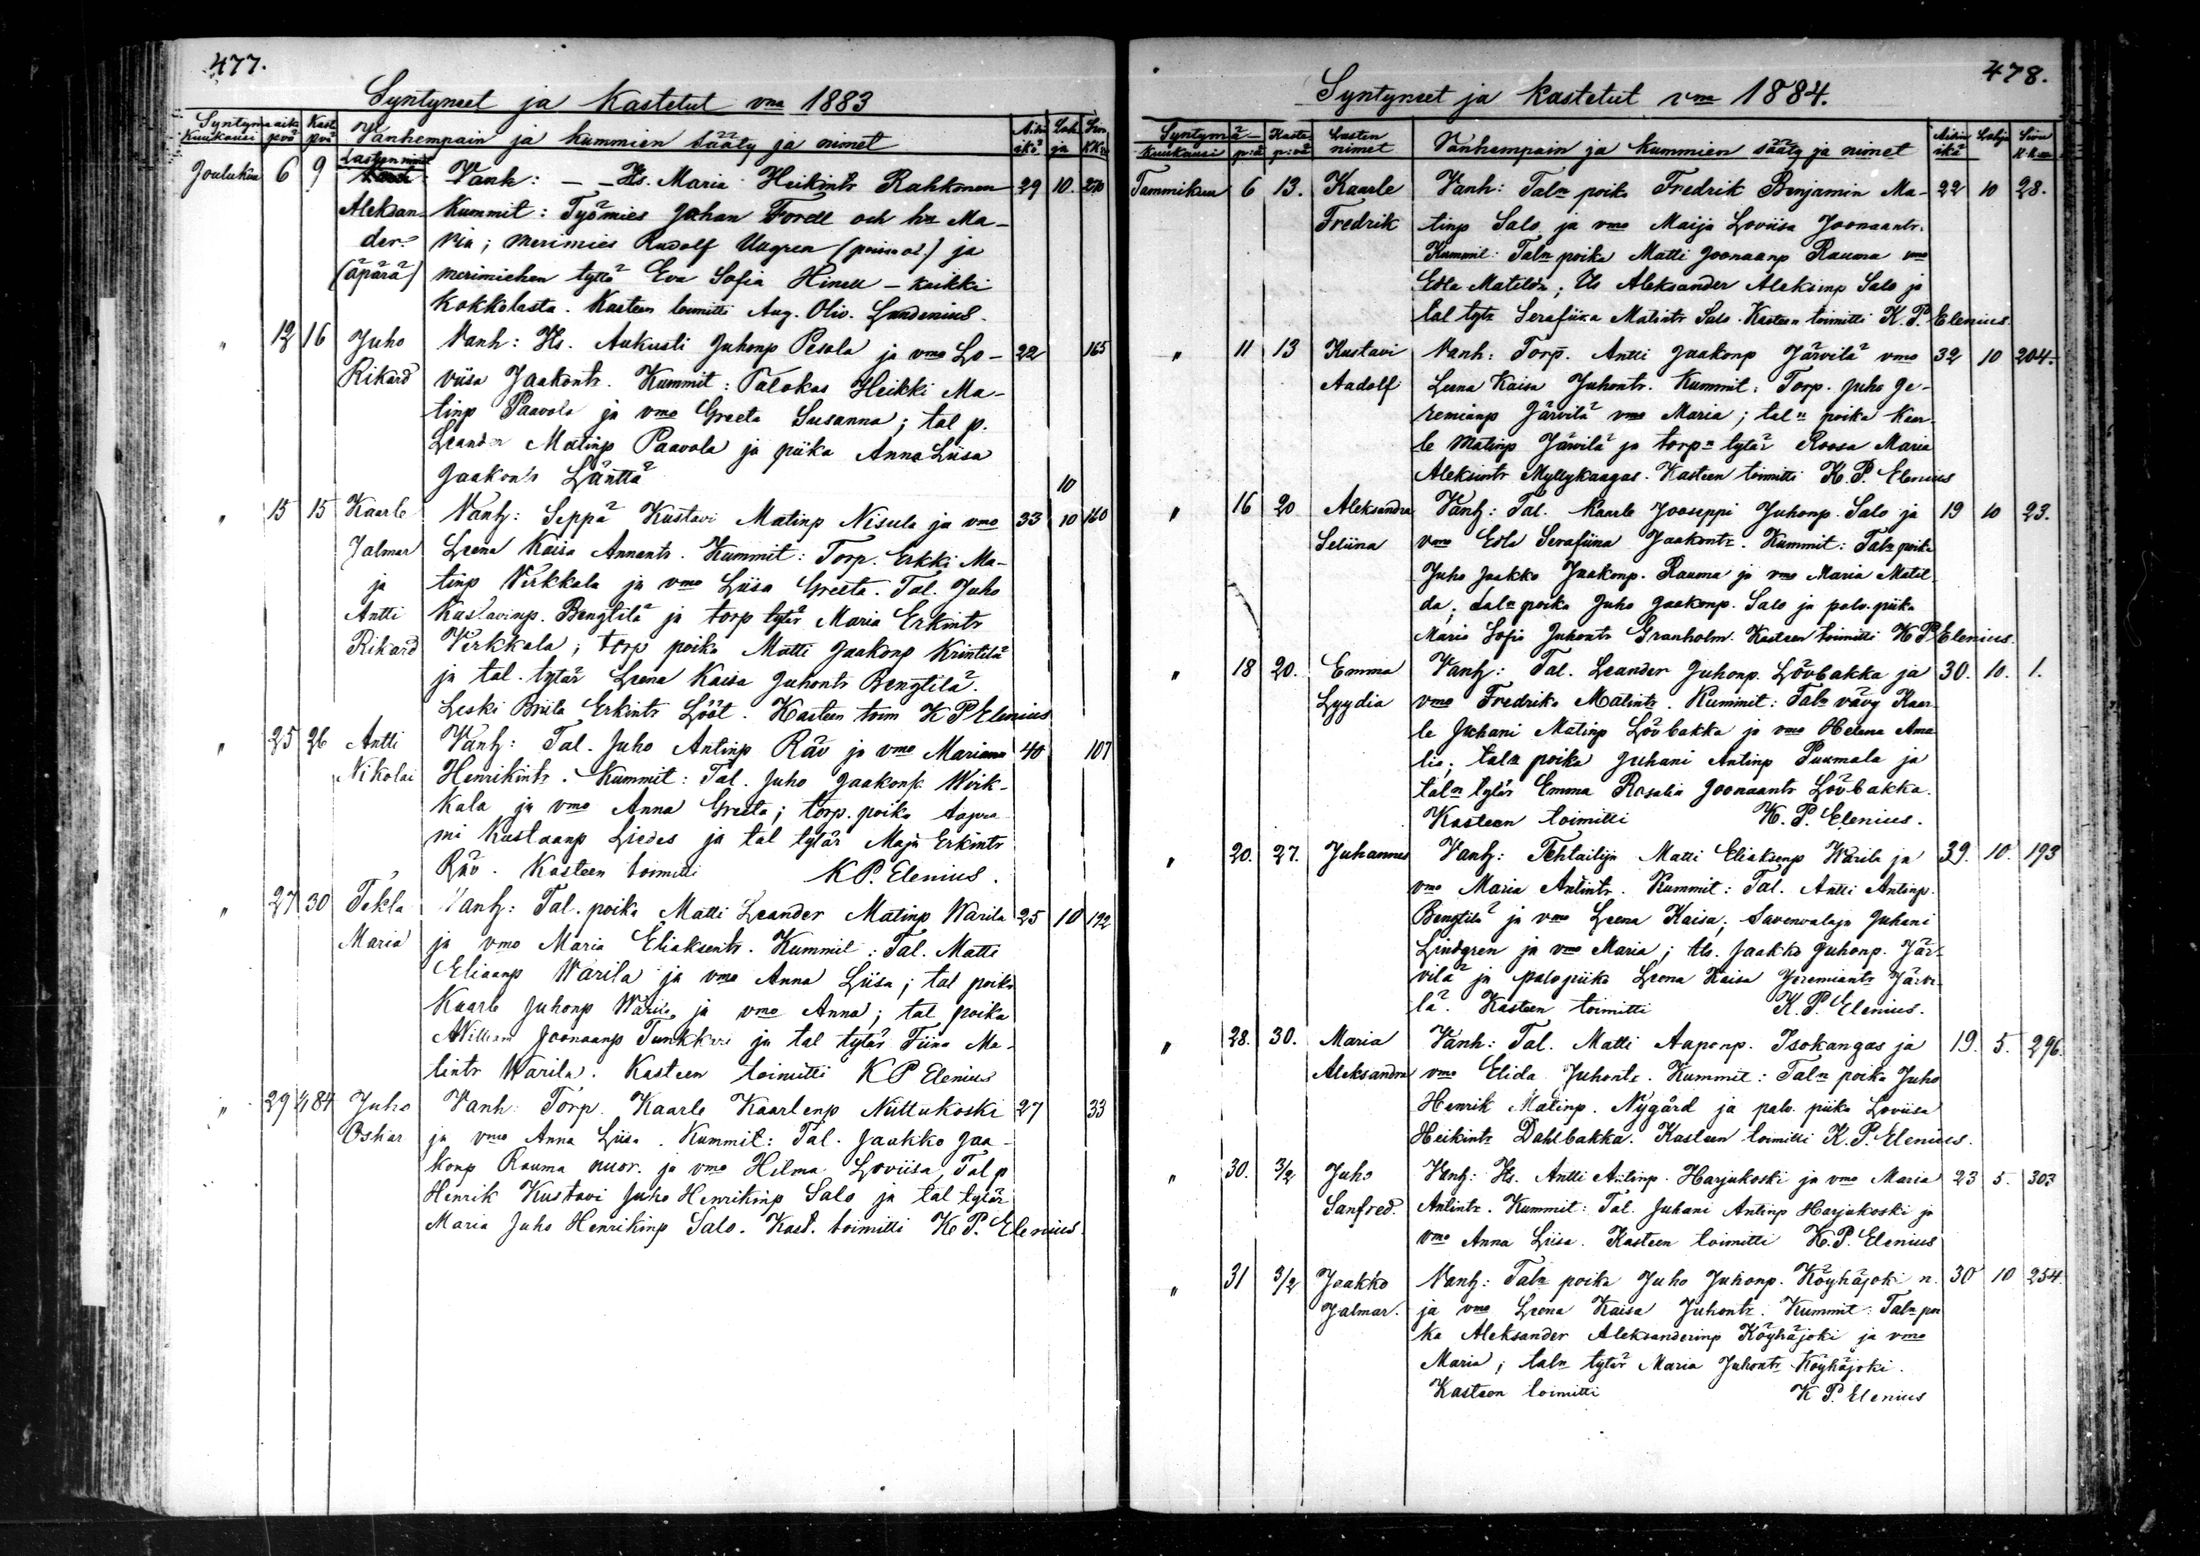 477.
Syntyneet ja Kastetut vna 1883
Syntymäaika Kast.
Kuukausi pvä pvä Vanhempain ja kummien sääty ja nimet
Lasten nimet
Jouluk. 6 9 Vanh: – – Its. Maria Heikintr Rahkonen 29 10.
Aleksan- Kummit: Työmies Johan Forell och hu Ma-
der. ria; merimies Rudolf Uugren ja
(äpärä) merimiehen tyttö Eva Sofia Hinell – kaikki
Kokkolasta. Kasteen toimitti Aug. Oliv. Lundenius.
" 12 16 Juho Vanh: Its. Aukusti Juhonp Pesola ja vmo Lo- 22 165
Rikard viisa Jaakontr. Kummit: Talokas Heikki Ma-
tinp Paavola ja vmo Greeta Susanna; tal p.
Leander Matinp Paavola ja piika Anna Liisa
Jaakontr Länttä 10
" 15 15 Kaarle Vanh: Seppä Kustavi Matinp Nisula ja vmo 33 10 160
Jalmar Leena Kaisa Annantr. Kummit: Torp. Erkki Ma-
ja tinp Virkkala ja vmo Liisa Greeta. Tal. Juho
Antti Kustavinp. Bengtilä ja torp tytär Maria Erkintr
Rikard Virkkala; torp poika Matti Jaakonp Krintilä
ja tal. tytär Leena Kaisa Juhontr Bengtilä.
Leski Briita Erkintr Lööt. Kasteen toim K P Elenius
" 25 26 Antti Vanh: Tal. Juho Antinp Räv ja vmo Mariana 40 107
Nikolai Henrikintr. Kummit: Tal. Juho Jaakonp. Wirk-
kala ja vmo Anna Greeta; torp. poika Aapra-
mi Kustaanp Liedes ja tal tytär Maja Erkintr
Räv. Kasteen toimitti K P. Elenius.
" 27 30 Tekla Vanh: Tal. poika Matti Leander Matinp Warila 25 10 192
Maria ja vmo Maria Eliaksentr. Kummit: Tal. Matti
Eliaanp Warila ja vmo Anna Liisa; tal poika
Kaarle Juhonp Warila ja vmo Anna; tal poika
William Joonaanp Tunkkari ja tal tytär Fiina Ma-
tintr Warila. Kasteen toimitti K P Elenius
" 29 1/1 84 Juho Vanh: Torp. Kaarle Kaarlenp Niittukoski 27 33
Oskar ja vmo Anna Liisa. Kummit: Tal. Jaakko Jaa-
konp Rauma nuor. ja vmo Hilma Loviisa, Tal p
Henrik Kustavi Juho Henrikinp Salo ja tal tytär
Maria Juho Henrikinp Salo. Kast. toimitti K P. Elenius.
478.
Syntyneet ja kastetut vna 1884.
Syntymä- Kaste Lasten Äidin Lahja Sivu
Kuukausi p:vä p:vä nimet Vanhempain ja Kummien sääty ja nimet ikä
Tammikuu 6 13. Kaarle Vanh: Taln poika Fredrik Benjamin Ma- 22 10 28.
Fredrik tinp Salo ja vmo Maija Loviisa Joonaantr.
Kummit: Taln poika Matti Joonaanp Rauma vmo
Edla Matilda; Its Aleksander Aleksinp Salo ja
tal tytr Serafiina Matintr Salo. Kasteen toimitti K. P. Elenius.
" 11 13 Kustavi Vanh: Torp. Antti Jaakonp Järvilä vmo 32 10 204.
Aadolf Leena Kaisa Juhontr. Kummit: Torp. Juho Je-
remianp Järvilä vmo Maria; taln poika Kaar-
le Matinp Järvilä ja torpn tytär Roosa Maria
Aleksintr Myllykangas. Kasteen toimitti K. P. Elenius
" 16 20 Aleksandra Vanh: Tal. Kaarle Jooseppi Juhonp. Salo ja 19 10 23.
Seliina vmo Edla Serafiina Jaakontr. Kummit: Taln poika
Juho Jaakko Jaakonp. Rauma ja vmo Maria Matil-
da; taln poika Juho Jaakonp. Salo ja palv. piika
Maria Sofia Juhontr Granholm. Kasteen toimitti K P Elenius.
" 18 20. Emma Vanh: Tal. Leander Juhonp. Lövbakka ja 30. 10. 1.
Lyydia vmo Fredrika Matintr. Kummit: Taln vävy Kaar-
le Juhani Matinp Lövbakka ja vmo Helena Ama-
lia; taln poika Juhani Antinp Puumala ja
taln tytär Emma Rosalia Joonaantr Lövbakka.
Kasteen toimitti K. P. Elenius.
" 20. 27. Juhannes Vanh: Tehtailija Matti Eliaksenp Warila ja 39. 10. 193
vmo Maria Antintr. Kummit: Tal. Antti Antinp.
Bengtilä ja vmo Leena Kaisa; Savenvalaja Juhani
Lindgren ja vmo Maria; Its. Jaakko Juhonp. Jär-
vilä ja palv piika Leena Kaisa Jeremiantr Järvi-
lä. Kasteen toimitti K. P. Elenius.
" 28. 30. Maria Vanh: Tal. Matti Aaponp. Isokangas ja 19. 5. 296.
Aleksandra vmo Elida Juhontr. Kummit: Taln poika Juho
Henrik Matinp. Nygård ja palv. piika Loviisa
Heikintr Dahlbakka. Kasteen toimitti K. P. Elenius.
" 30. 3/2 Juho Vanh: Its. Antti Antinp. Harjukoski ja vmo Maria 23 5. 303
Sanfred. Antintr. Kummit: Tal. Juhani Antinp Harjukoski ja
vmo Anna Liisa. Kasteen toimitti K. P. Elenius
" 31 3/2 Jaakko Vanh: Taln poika Juho Juhonp. Köyhäjoki n. 30 10 254.
Jalmar. ja vmo Leena Kaisa Juhontr. Kummit: Taln poi-
ka Aleksander Aleksanderinp Köyhäjoki ja vmo
Maria; taln tytär Maria Juhontr Köyhäjoki.
Kasteen toimitti K P. Elenius